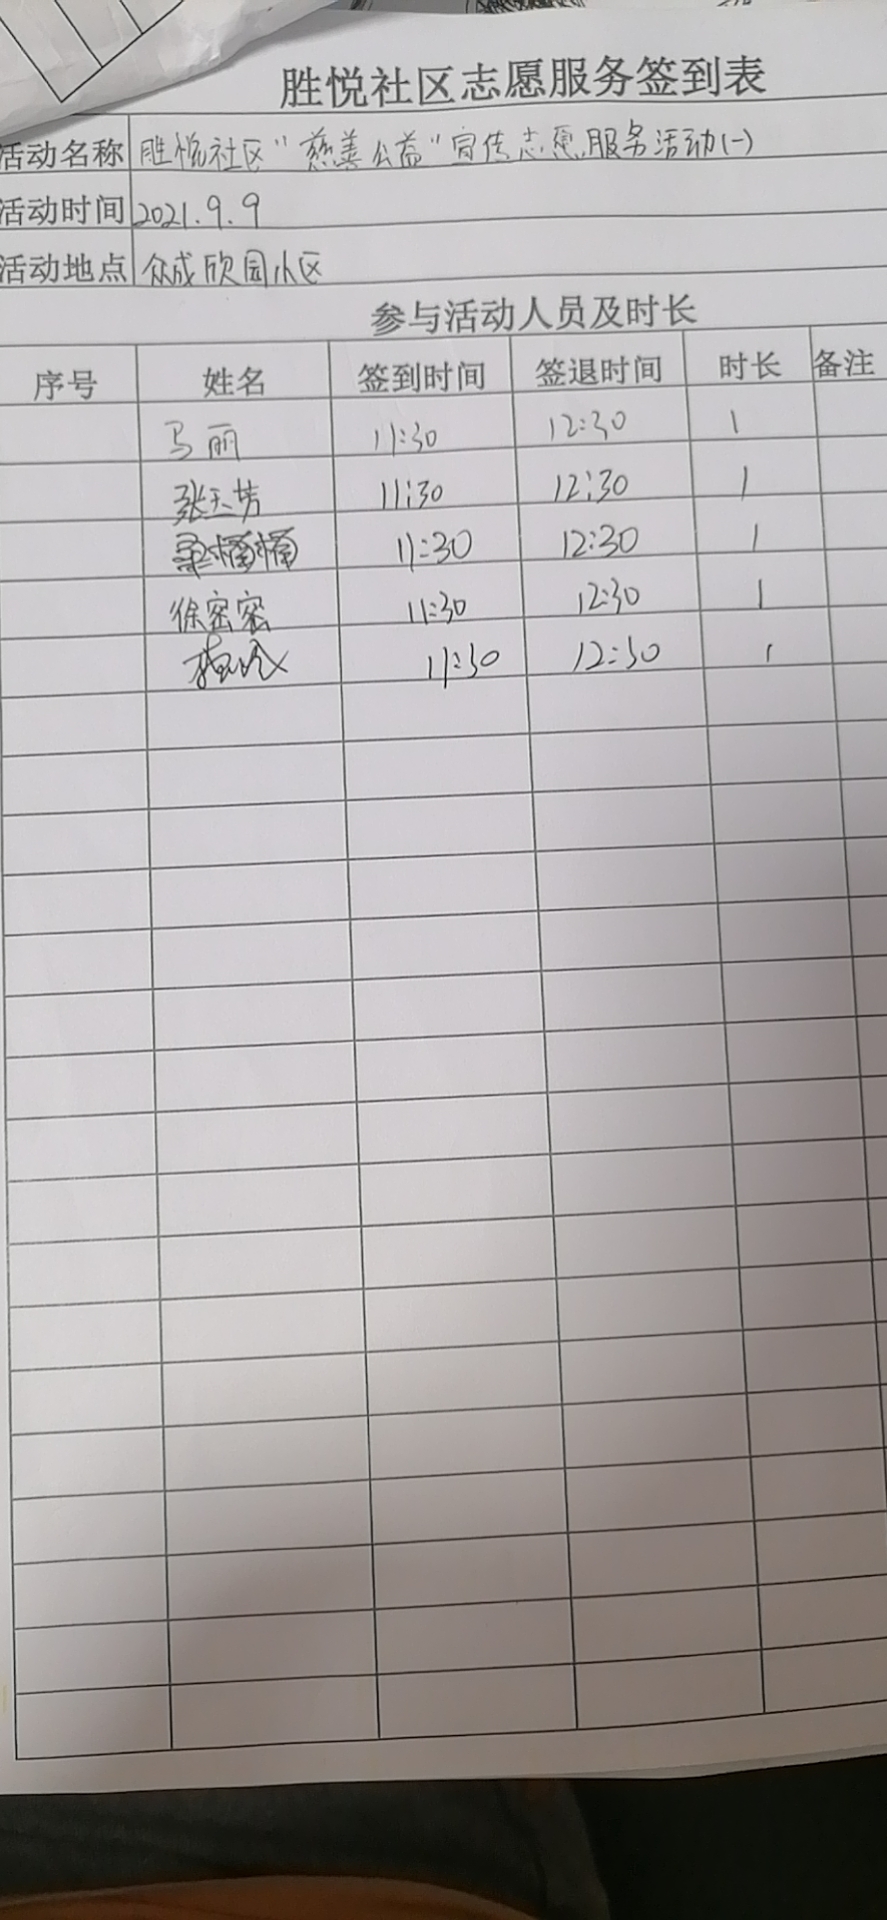 胜悦社区志愿服务签到表
活动名称 胜悦社区“慈善公益”宣传志愿服务活动(一)
活动时间 2021.9.9
活动地点 众成欣园小区
参与活动人员及时长
序号 姓名 签到时间 签退时间 时长 备注
马丽 11:30 12:30 1
张玉芳 11:30 12:30 1
11:30 12:30 1
徐密密 11:30 12:30 1
11:30 12:30 1